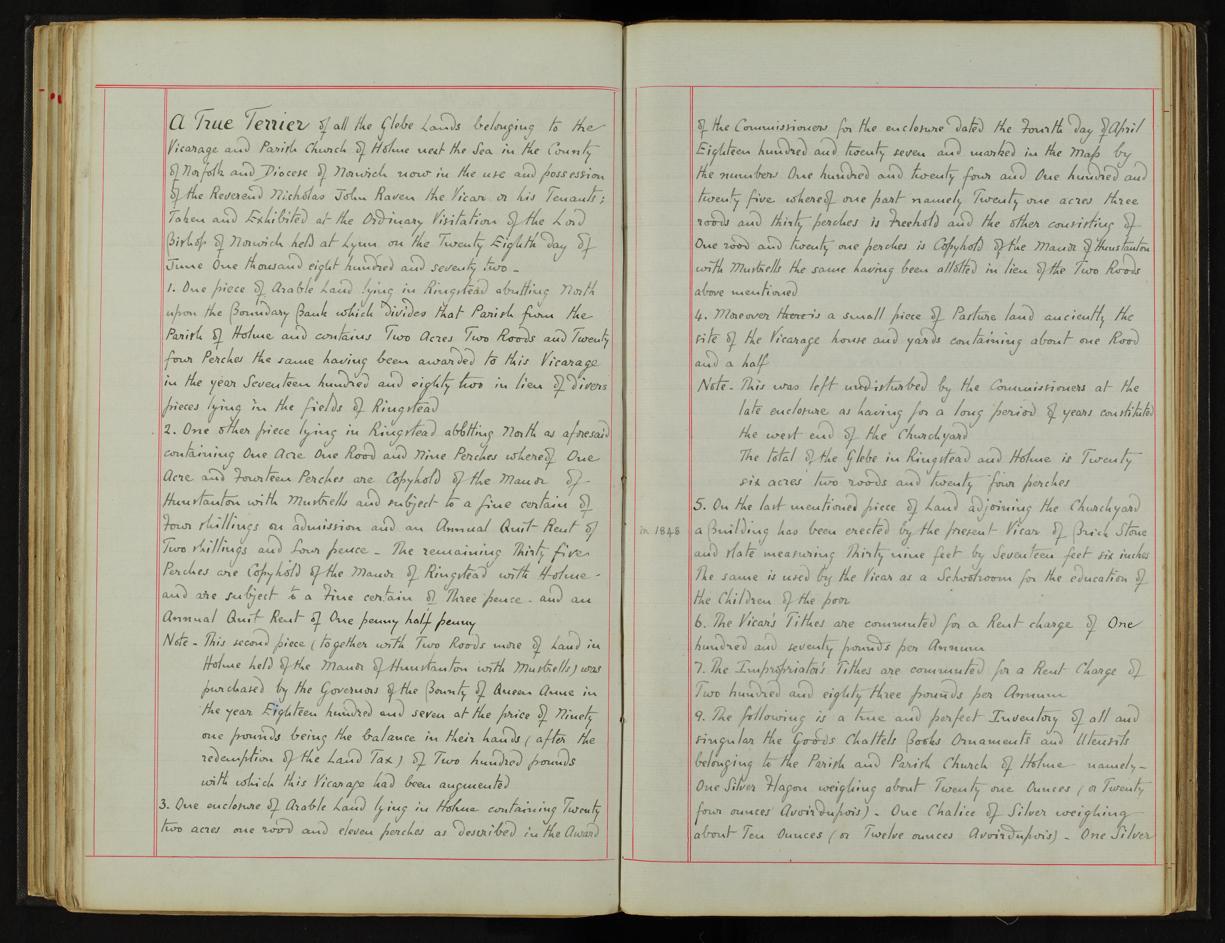 A True Terrier of all the Glebe Lands belonging to the
Vicarage and Parish Church of Holme next the Sea in the County
of Norfolk and Diocese of Norwich now in the use and possession
of the Reverend Nicholas John Raven the Vicar or his Tenants;
Taken and Exhibited at the Ordinary Visitation of the Lord
Bishop of Norwich held at Lynn on the Twenty Eighth day of
June One thousand eight hundred and seventy two -
1. One piece of Arable Land lying in Ringstead abutting North
upon the Boundary Bank which divides that Parish from the
Parish of Holme and contains Two Acres Two Roods and Twenty
four Perches the same having been awarded to this Vicarage
in the year Seventeen hundred and eighty two in lieu of divers
pieces lying in the fields of Ringstead
2. One other piece lying in Ringstead abbtting North as aforesaid
containing One Acre One Rood and Nine Perches whereof One
Acre and Fourteen Perches are Copyhold of the Manor of
Hunstanton with Mustrells and subject to a fine certain of
Four shillings on admission and an Annual Quit Rent of
Two shillings and four pence - The remaining Thirty five
Perches are Copyhold of the Manor of Ringstead with Holme -
and are subject to a Fine certain of Three pence - and an
Annual Quit Rent of One penny half penny
Note - This second piece (together with Two Roods more of Land in
Holme held of the Manor of Hunstanton with Mustrells) was
purchased by the Governors of the Bounty of Queen Anne in
the year Eighteen hundred and seven at the price of Ninety
one pounds being the balance in their hands (after the
redemption of the Land Tax) of Two hundred pounds
with which this Vicarage had been augmented
3. One enclosure of Arable Land lying in Holme containing Twenty
two acres one rood and eleven perches as described in the Award
of the Commissioners for the enclosure dated the Fourth day of April
Eighteen hundred and twenty seven and marked in the Map by
the numbers One hundred and twenty four and One hundred and
twenty five whereof one part namely Twenty one acres three
roods and thirty perches is Freehold and the other consisting of
One rood and twenty one perches is Copyhold of the Manor of Hunstanton
with Mustrells the same having been allotted in lieu of the Two Roods
above mentioned
4. Moreover there is a small piece of Pasture land anciently the
site of the Vicarage house and yards containing about one Rood
and a half
Note - This was left undisturbed by the Commissioners at the
late enclosure as having for a long period of years constituted
the west end of the Churchyard
The total of the Glebe in Ringstead and Holme is Twenty
six acres two roods and twenty four perches
5. On the last mentioned piece of Land adjoining the Churchyard
in 1848 a Building has been erected by the present Vicar of Brick Stone
and slate measuring Thirty nine feet by Seventeen feet six inches
The same is used by the Vicar as a Schoolroom for the education of
the Children of the poor
6. The Vicar's Tithes are commuted for a Rent charge of One
hundred and seventy pounds per Annum
7. The Impropriator's Tithes are commuted for a Rent Charge of
Two hundred and eighty three pounds per Annum
9. The following is a true and perfect Inventory of all and
singular the Goods Chattels Books Ornaments and Utensils
belonging to the Parish and Parish Church of Holme namely -
One Silver Flagon weighing about Twenty one Ounces (or Twenty
four ounces Avoirdupois) - One Chalice of Silver weighing
about Ten Ounces (or Twelve ounces Avoirdupois) - One Silver